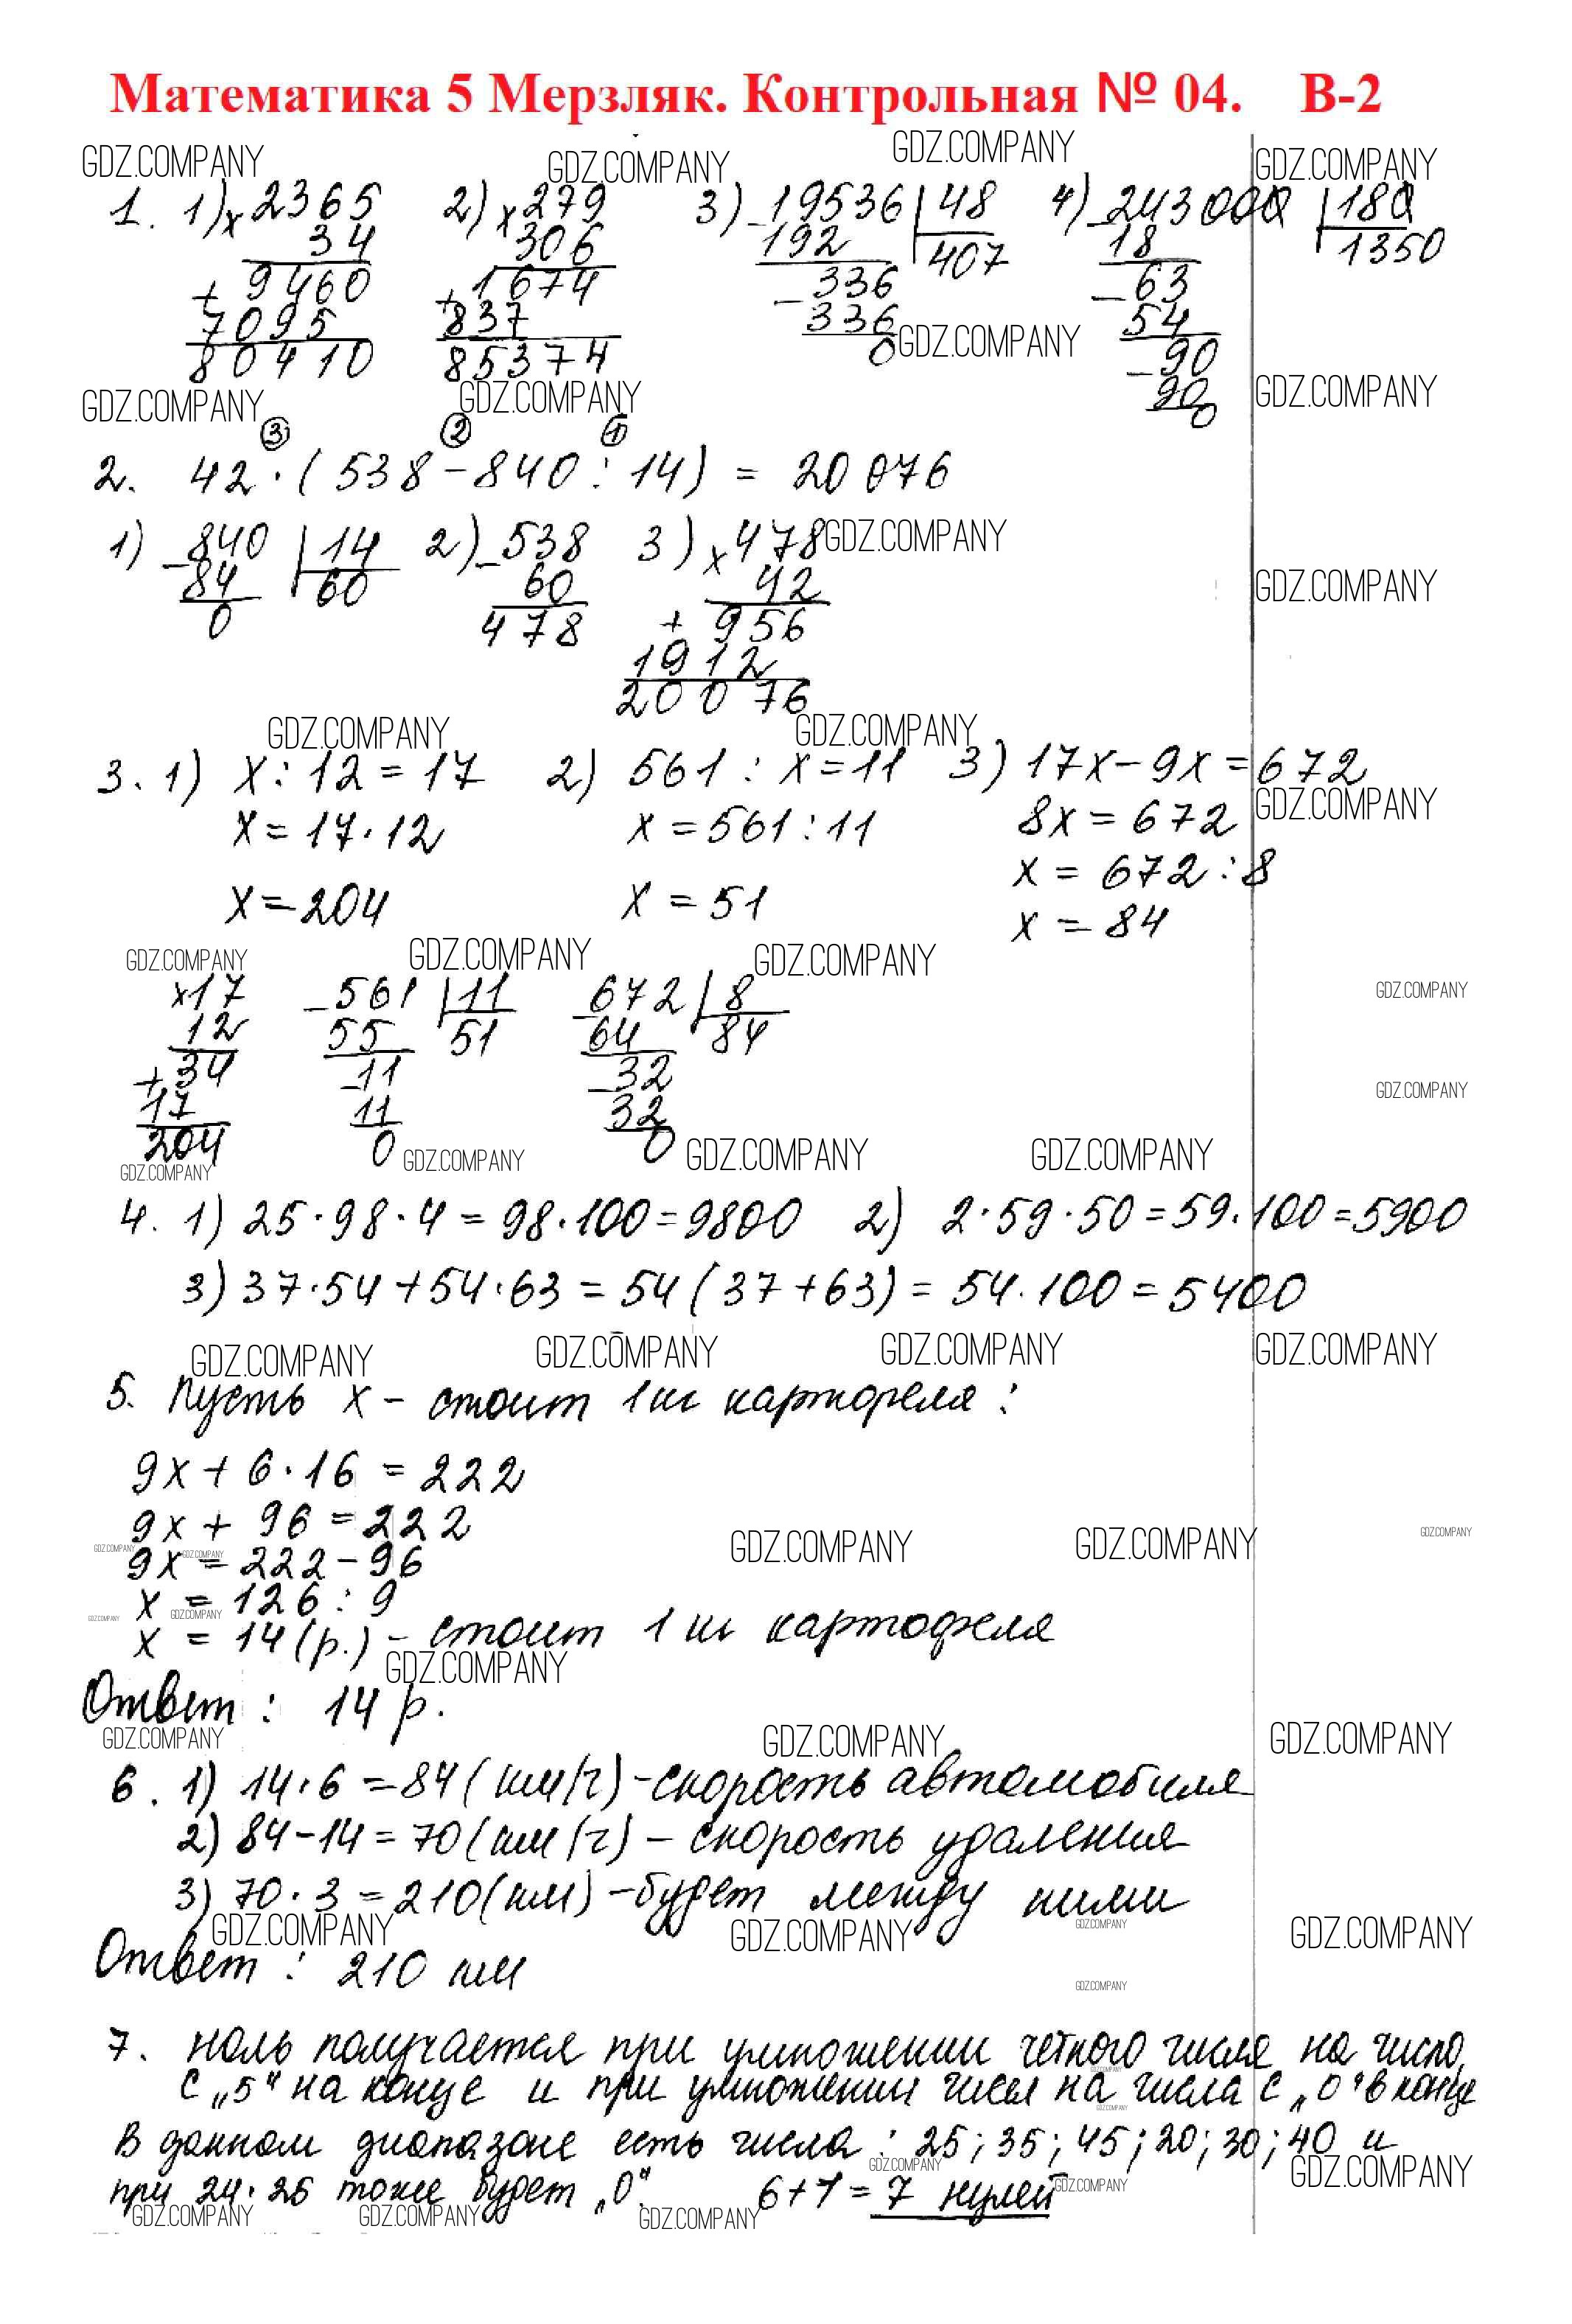 Математика 5 Мерзляк. Контрольная № 04. В-2
GDZ.COMPANY GDZ.COMPANY GDZ.COMPANY GDZ.COMPANY
1. 1) × 2365 2) × 279 3) - 19536 | 48 4) - 243000 | 180
34 306 192 407 18 1350
+ 9460 + 1674 - 336 - 63
7095 837 336 54
80410 85374 0 GDZ.COMPANY - 90
90
0
GDZ.COMPANY GDZ.COMPANY GDZ.COMPANY
③ ② ①
2. 42 · ( 538 - 840 : 14) = 20 076
1) - 840 | 14 2) - 538 3) × 478 GDZ.COMPANY
84 60 60 42 GDZ.COMPANY
0 478 + 956
1912
20076
GDZ.COMPANY GDZ.COMPANY
3. 1) x : 12 = 17 2) 561 : x = 11 3) 17x - 9x = 672
x = 17 · 12 x = 561 : 11 8x = 672 GDZ.COMPANY
x = 672 : 8
x = 204 x = 51 x = 84
GDZ.COMPANY GDZ.COMPANY GDZ.COMPANY
× 17 - 561 | 11 - 672 | 8 GDZ.COMPANY
12 55 51 64 84
+ 34 - 11 - 32 GDZ.COMPANY
17 11 32
204 0 0
GDZ.COMPANY GDZ.COMPANY GDZ.COMPANY GDZ.COMPANY
4. 1) 25 · 98 · 4 = 98 · 100 = 9800 2) 2 · 59 · 50 = 59 · 100 = 5900
3) 37 · 54 + 54 · 63 = 54 ( 37 + 63) = 54 · 100 = 5400
GDZ.COMPANY GDZ.COMPANY GDZ.COMPANY GDZ.COMPANY
5. Пусть x - стоит 1 кг картофеля :
9x + 6 · 16 = 222
9x + 96 = 222
GDZ.COMPANY GDZ.COMPANY GDZ.COMPANY GDZ.COMPANY GDZ.COMPANY
9x = 222 - 96
x = 126 : 9
GDZ.COMPANY GDZ.COMPANY
x = 14 (р.) - стоит 1 кг картофеля
GDZ.COMPANY
Ответ : 14 р.
GDZ.COMPANY GDZ.COMPANY GDZ.COMPANY
6. 1) 14 · 6 = 84 ( км/ч) - скорость автомобиля
2) 84 - 14 = 70 ( км/ч) - скорость удаления
3) 70 · 3 = 210 (км) - будет между ними
GDZ.COMPANY GDZ.COMPANY GDZ.COMPANY GDZ.COMPANY
Ответ : 210 км
GDZ.COMPANY
7. ноль получается при умножении четного числа на число
GDZ.COMPANY
с „5" на конце и при умножении чисел на числа с „0" в конце
GDZ.COMPANY
В данном диапазоне есть числа : 25 ; 35 ; 45 ; 20 ; 30 ; 40 и
GDZ.COMPANY GDZ.COMPANY GDZ.COMPANY
при 24 · 26 тоже будет „0". 6 + 1 = 7 нулей
GDZ.COMPANY GDZ.COMPANY GDZ.COMPANY